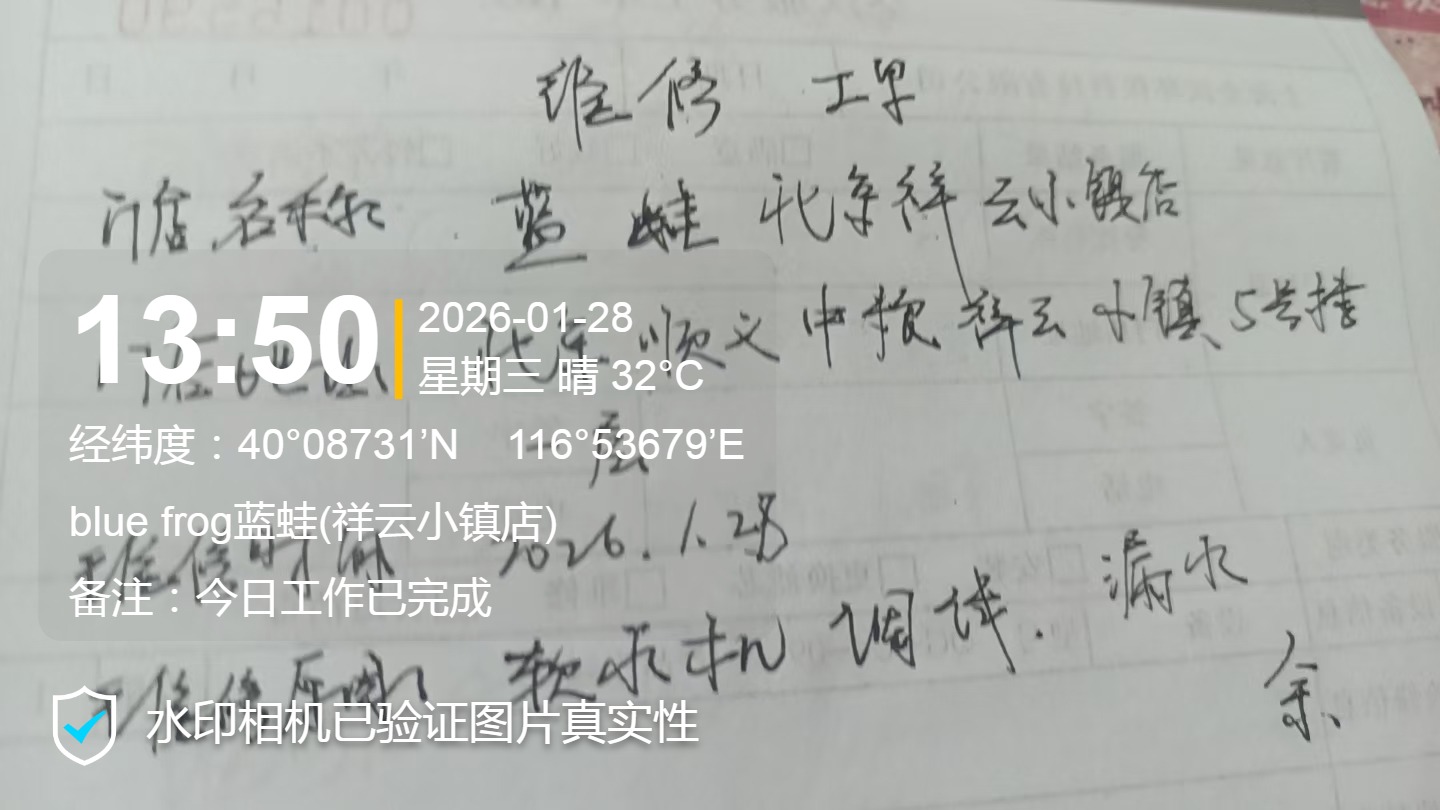 维修 工单
门店名称 蓝蛙北京祥云小镇店
门店地址 北京顺义中粮祥云小镇5号楼
一层
维修时间 2026.1.28
维修原因 软水机调试.漏水
余
13:50
2026-01-28
星期三 晴 32°C
经纬度：40°08731’N 116°53679’E
blue frog蓝蛙(祥云小镇店)
备注：今日工作已完成
水印相机已验证图片真实性